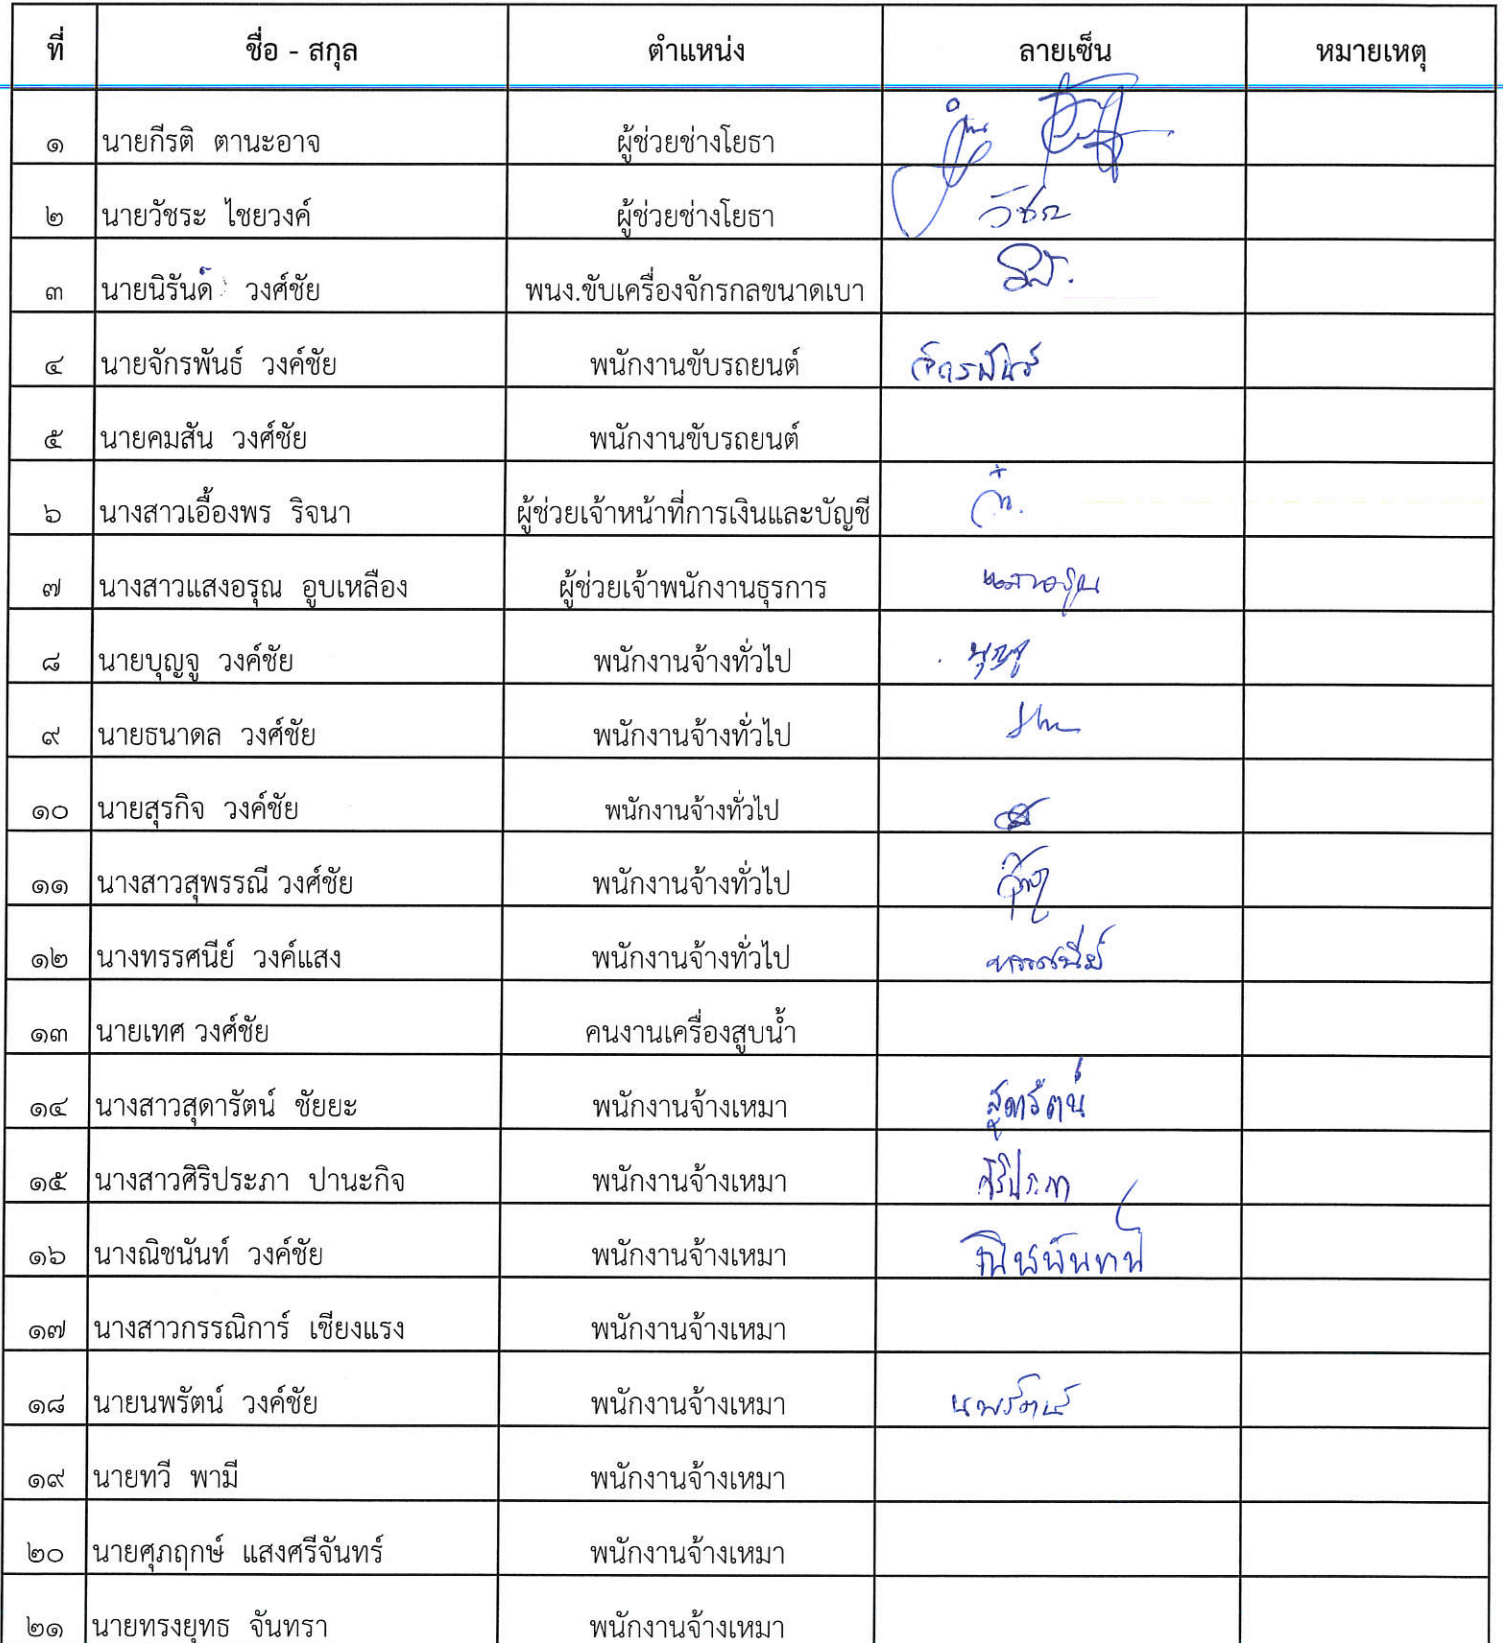 ที่ ชื่อ - สกุล ตำแหน่ง ลายเซ็น หมายเหตุ
๑ นายกีรติ ตานะอาจ ผู้ช่วยช่างโยธา
๒ นายวัชระ ไชยวงค์ ผู้ช่วยช่างโยธา วัชระ
๓ นายนิรันด์ วงศ์ชัย พนง.ขับเครื่องจักรกลขนาดเบา
๔ นายจักรพันธ์ วงค์ชัย พนักงานขับรถยนต์ จักรพันธ์
๕ นายคมสัน วงศ์ชัย พนักงานขับรถยนต์
๖ นางสาวเอื้องพร ริจนา ผู้ช่วยเจ้าหน้าที่การเงินและบัญชี
๗ นางสาวแสงอรุณ อูบเหลือง ผู้ช่วยเจ้าพนักงานธุรการ แสงอรุณ
๘ นายบุญจู วงค์ชัย พนักงานจ้างทั่วไป บุญจู
๙ นายธนาดล วงศ์ชัย พนักงานจ้างทั่วไป
๑๐ นายสุรกิจ วงค์ชัย พนักงานจ้างทั่วไป
๑๑ นางสาวสุพรรณี วงศ์ชัย พนักงานจ้างทั่วไป
๑๒ นางทรรศนีย์ วงค์แสง พนักงานจ้างทั่วไป ทรรศนีย์
๑๓ นายเทศ วงศ์ชัย คนงานเครื่องสูบน้ำ
๑๔ นางสาวสุดารัตน์ ชัยยะ พนักงานจ้างเหมา สุดารัตน์
๑๕ นางสาวศิริประภา ปานะกิจ พนักงานจ้างเหมา ศิริประภา
๑๖ นางณิชนันท์ วงค์ชัย พนักงานจ้างเหมา ณิชนันทน์
๑๗ นางสาวกรรณิการ์ เชียงแรง พนักงานจ้างเหมา
๑๘ นายนพรัตน์ วงค์ชัย พนักงานจ้างเหมา นพรัตน์
๑๙ นายทวี พามี พนักงานจ้างเหมา
๒๐ นายศุภฤกษ์ แสงศรีจันทร์ พนักงานจ้างเหมา
๒๑ นายทรงยุทธ จันทรา พนักงานจ้างเหมา